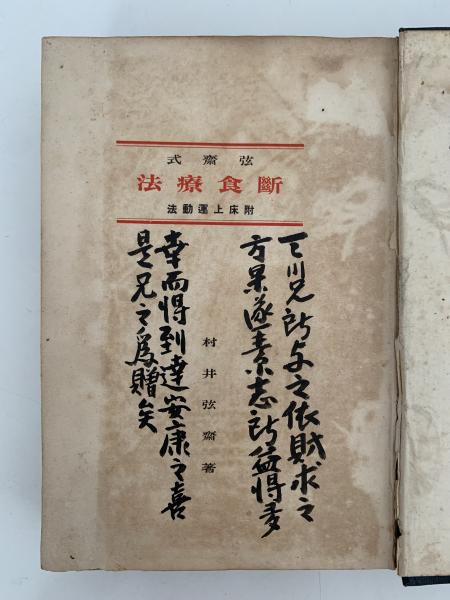 弦齋式
斷食療法
附床上運動法
兄所与之依財求之
方果遂素志所益得多
村井弦齋著
幸而得到達安康之喜
是兄之為贈矣